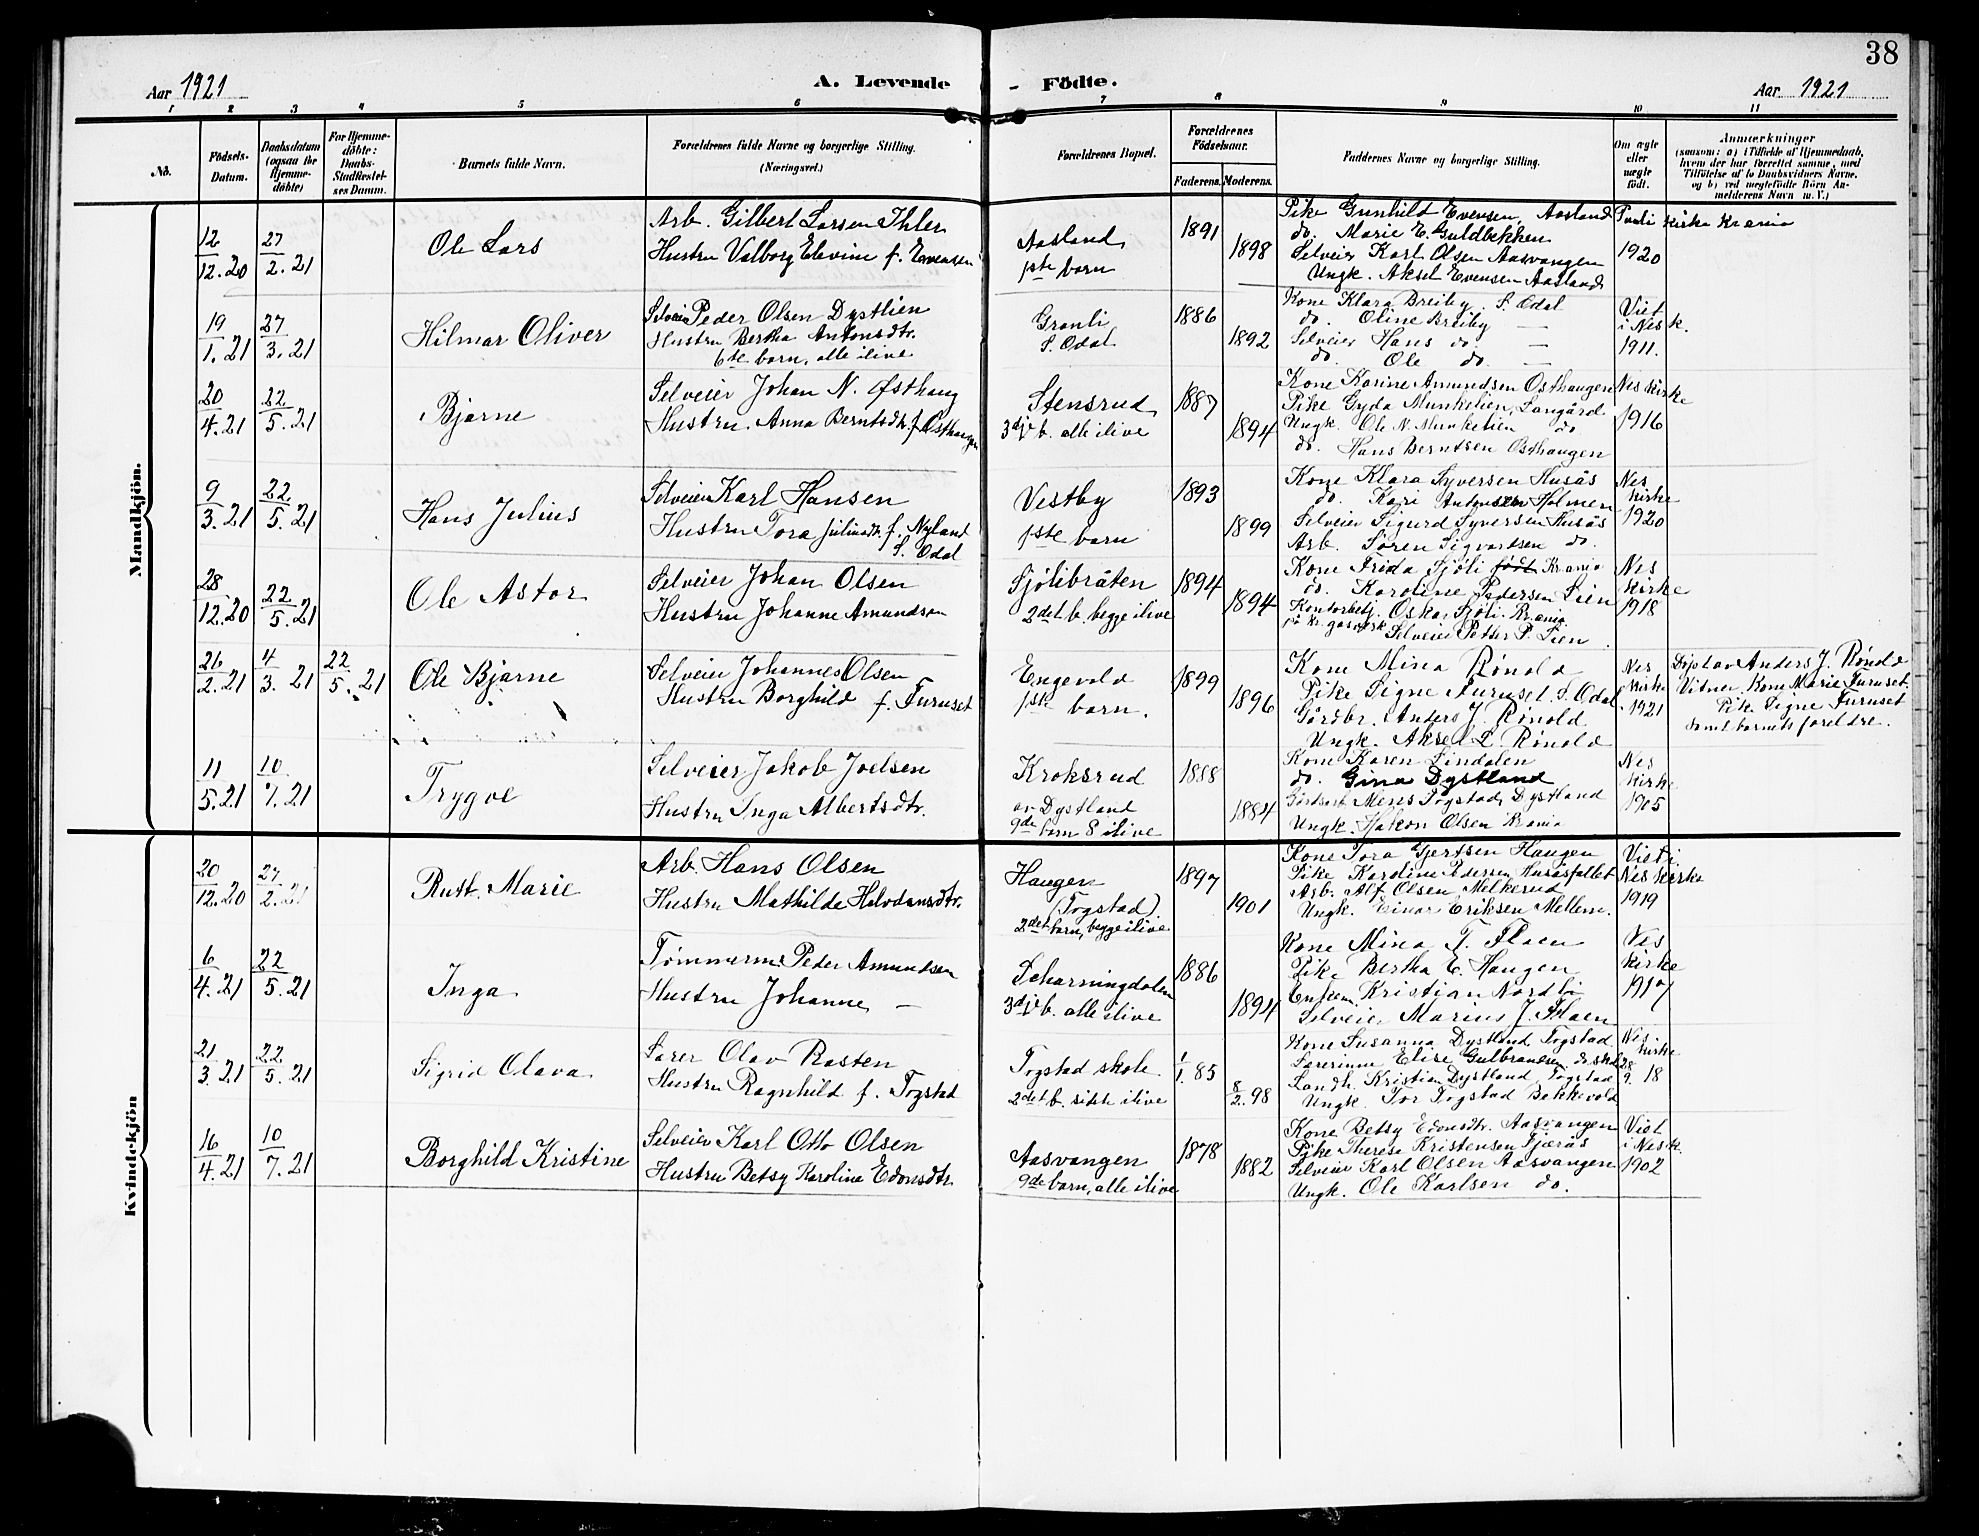 38
Aar 1921
A. Levende - Födte.
Aar 1921
1 2 3 4 5 6 7 8 9 10 11
No.
Födsels-Datum.
Daabsdatum (ogsaa for Hjemme-döbte)
For Hjemme-döbte: Daabs-Stadfæstel-ses Datum.
Barnets fulde Navn.
Forældrenes fulde Navne og borgerlige Stilling. (Næringsvei.)
Forældrenes Bopæl.
Forældrenes Födselsaar.
Faderens. Moderens.
Faddernes Navne og borgerlige Stilling.
Om ægte eller uægte födt.
Anmærkninger
(saasom: a) i Tilfælde af Hjemmedaab, hvem der har forrettet samme, med Tilföielse af to Daabsvidners Navne, og b) ved uægtefödte Börn An-melderens Navn m. V.)
Mandkjön.
12/12.20 27/2.21 Ole Lars
Arb. Gilbert Larsen Ihler
Hustru Valborg Elevine f. Evensen
Aasland
1ste barn
1891 1898
Pike Gunhild Evensen, Aasland
do. Marie E. Guldbekken
Selveier Karl Olsen Aasvangen
Ungk. Aksel Evensen Aasland
Pauli kirke Krania
1920
19/1.21 27/3.21 Hilmar Oliver
Selveier Peder Olsen Dystlien
Hustru Bertha Antonsdtr.
6te barn, alle ilive
Granli
S. Odal
1886 1892
Kone Klara Breiby, S. Odal
do. Oline Breiby —
Selveier Hans do —
do. Ole do. —
Viet
i Nes k.
1911.
20/4.21 22/5.21 Bjarne
Selveier Johan N. Østhaug
Hustru. Anna Berntsdtr. f. Østhaugen
Stensrud
3dje b. alle ilive
1887 1894
Kone Karine Amundsen Osthaugen
Pike Gyda Munkelien, Langård
Ungk. Ole N. Munkelien do
do. Hans Berntsen Osthaugen
Nes kirke
1916
9/3.21 22/5.21 Hans Julius
Selveier Karl Hansen
Hustru Tora Juliusdtr. f. Nyland
S. Odal
Vestby
1ste barn
1893 1899
Kone Klara Syversen Husås
do. Kari Antonsen Holmen
Selveier Sigurd Syversen Husås
Arb. Søren Sigvartsen do.
Nes
kirke
1920
28/12.20 22/5.21 Ole Astor
Selveier Johan Olsen
Hustru Johanne Amundsen
Sjölibråten
2det b. begge ilive
1894 1894
Kone Frida Sjöli født Krania
do. Karoline Pedersen Lien
Kontorbetj. Oskar Sjöli. Krania
på Kr. gasverk Selveier Petter P. Lien
Nes
kirke
1918
26/2.21 4/3.21 22/5.21 Ole Bjarne
Selveier Johannes Olsen
Hustru Borghild f. Furuset
Engevold
1ste barn.
1899 1896
Kone Mina Rønold
Pike Signe Furuset. S. Odal
Gårdbr. Anders J. Rønold
Ungk. Aksel L. Rønold
Nes
kirke
1921
Döpt av Anders J. Rønold
Vitner Kone Marie Furuset.
Pike Signe Furuset
samt barnets foreldre.
11/5.21 10/7.21 Trygve
Selveier Jakob Joelsen
Hustru Inga Albertsdtr.
Kroksrud
av Dystland
9de barn 8 ilive
1888 1884
Kone Karen Lindalen
do. Gina Dystland
Gårdsarb. Menes Togstad, Dystland
Ungk. Håkon Olsen Krania
Nes
kirke
1905
Kvindekjön
20/12.20 27/2.21 Rutt Marie
Arb. Hans Olsen
Hustru Mathilde Halvdansdtr.
Haugen
(Togstad)
2det barn, begge ilive
1897 1901
Kone Tora Gjertsen Haugen
Pike Karoline Pedersen Husåsfallet
Arb. Alf Olsen Melkerud
Ungk. Einar Eriksen Mellem.
Viet i
Nes kirke
1919
6/4.21 22/5.21 Inga
Tømmerm. Peder Amundsen
Hustru Johanne —
Scharningdalen
3dje b. alle ilive
1886 1894
Kone Mina T. Floen
Pike Bertha E. Haugen
Enkem. Kristian Nordli
Selveier Marius J. Floen
Nes
kirke
1917
21/3.21 22/5.21 Sigrid Olava
Lærer Olav Rasten
Hustru Ragnhild f. Togstad
Togstad skole
2det b. siste ilive
1/1.85 8/2.98
Kone Susanna Dystland Togstad
Lærerinne Elise Gulbrandsen do skole
Landh. Kristian Dystland Togstad
Ungk. Tor Togstad Bekkevold
Nes
kirke
28/9. 18
16/4.21 10/7.21 Borghild Kristine
Selveier Karl Otto Olsen
Hustru Betsy Karoline Edonsdtr.
Aasvangen
9de barn, alle ilive
1878 1882
Kone Betsy Edonsdtr. Aasvangen
Pike Therese Kristensen Fjeräs
Selveier Karl Olsen Aasvangen
Ungk. Ole Karlsen do.
Viet
i Nes k.
1902